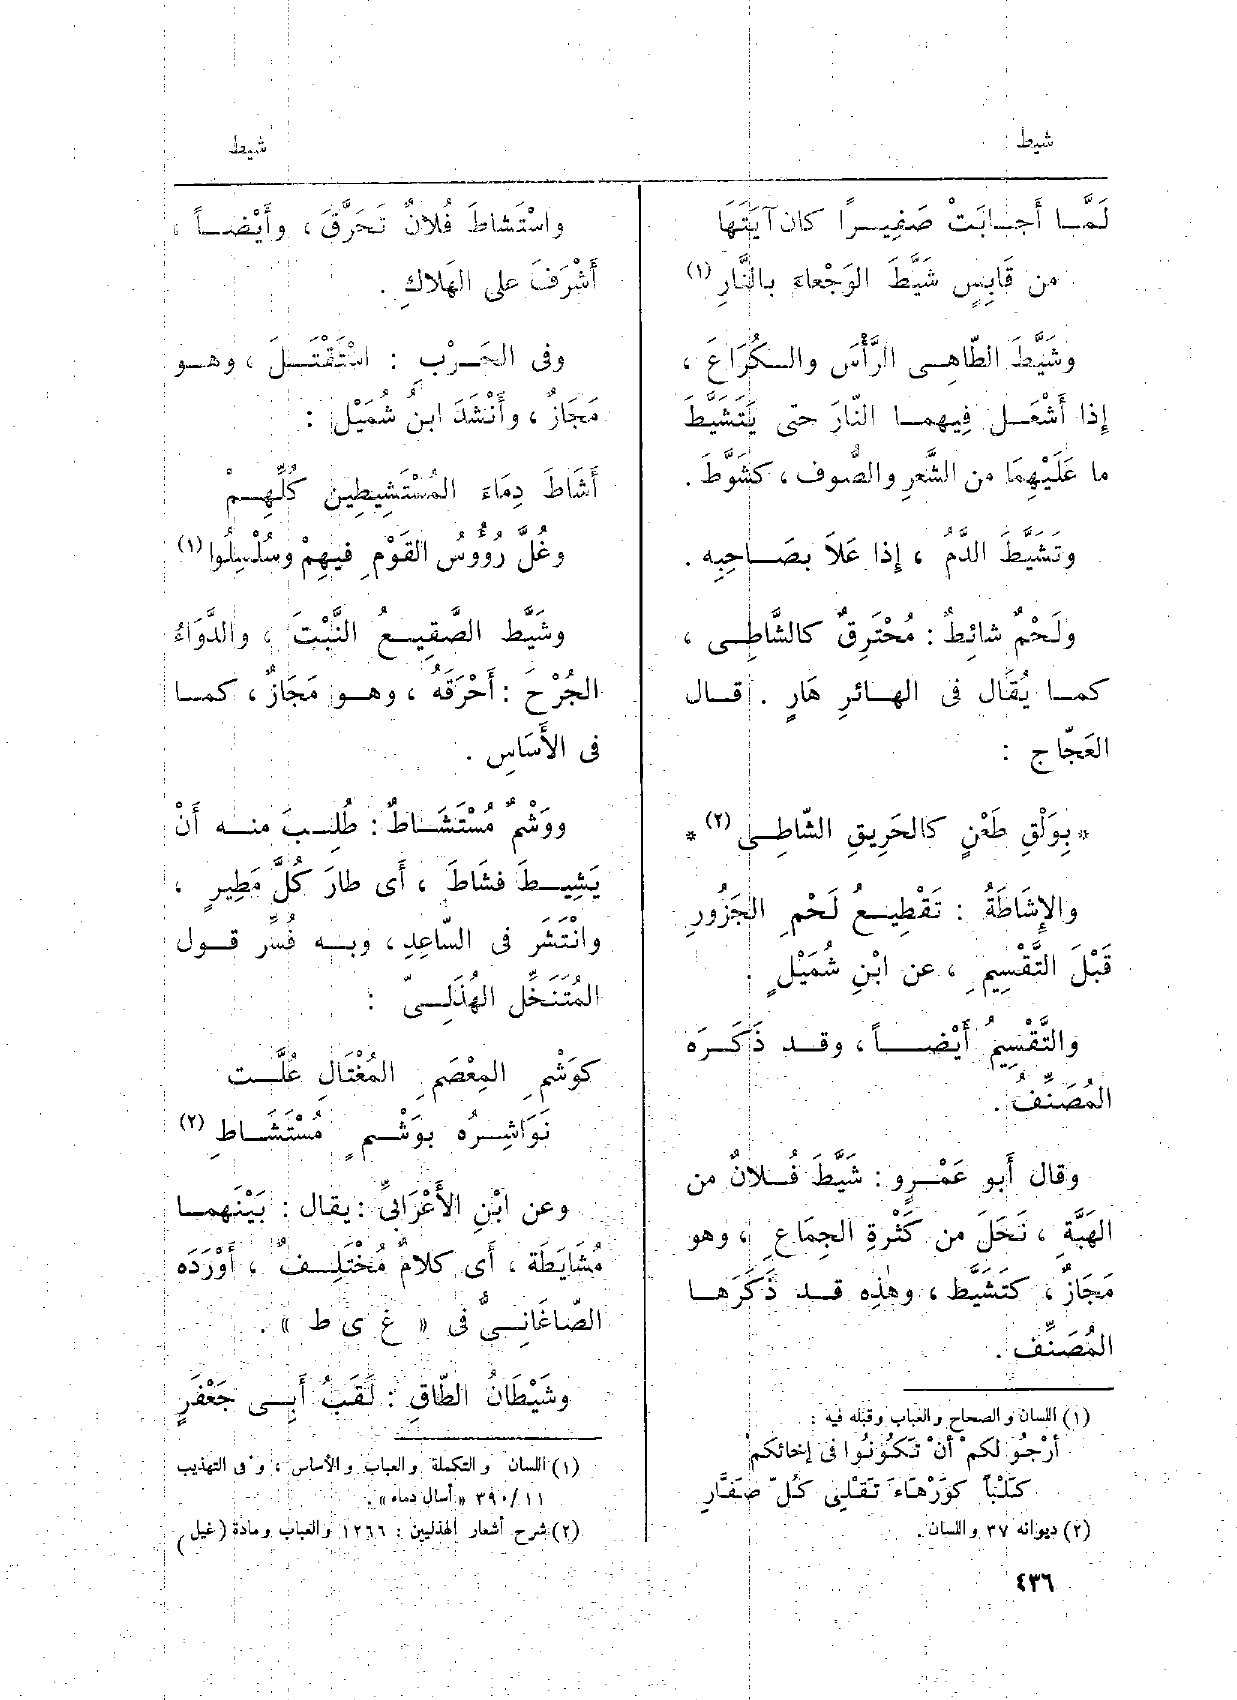 شيط
شيط
لَمَّا أَجابَتْ صَفِيرًا كان آيَتَهَا
من قَابِسٍ شَيَّطَ الوَجْعاءَ بالنَّارِ (١)
وشَيَّطَ الطّاهِى الرَّأْسَ والكُرَاعَ ،
إِذا أَشْعَل فِيهما النّارَ حتى يَتَشَيَّطَ
ما عَلَيْهِمَا من الشَّعرِ والصُّوف ، كشَوَّطَ .
وتَشَيَّطَ الدَّمُ ، إِذا غَلاَ بصَاحِبِه .
ولَحْمٌ شائِطٌ : مُحْتَرِقٌ كالشَّاطِى ،
كما يُقَال فى الهائرِ هَارٍ . قال
العَجّاج :
* بِوَلْقِ طَعْنٍ كالحَرِيقِ الشّاطِى (٢) *
والإِشَاطَةُ : تَقْطِيعُ لَحْمِ الجَزُورِ
قَبْلَ التَّقْسِيمِ ، عن ابْنِ شُمَيْلٍ .
والتَّقْسِيمُ أَيْضاً ، وقد ذَكَرَه
المُصَنِّفُ .
وقال أَبو عَمْرٍو : شَيَّطَ فُلانٌ من
الهَبَّةِ ، نَحَلَ من كَثْرَةِ الجِمَاعِ ، وهو
مَجَازٌ ، كتَشَيَّط ، وهٰذِه قد ذَكَرَها
المُصَنِّف .
(١) اللسان والصحاح والعباب وقبله فيه :
أرْجُو لكمْ أنْ تَكُونُوا فى إخائكم
كَلْباً كوَرْهَاءَ تَقْلِى كُلّ صَفَّارِ
(٢) ديوانه ٣٧ واللسان .
واسْتَشاطَ فُلانٌ تَحَرَّقَ ، وأَيْضاً ،
أَشْرَفَ على الهَلاكِ .
وفى الحَرْبِ : اسْتَقْتَلَ ، وهو
مَجَازٌ ، وأَنْشَدَ ابنُ شُمَيْل :
أَشَاطَ دِمَاءَ المُسْتَشِيطِين كُلِّهِمْ
وغُلَّ رُؤُوسُ القَوْمِ فيهِمْ وسُلْسِلُوا (١)
وشَيَّط الصَّقِيعُ النَّبْتَ ، والدَّوَاءُ
الجُرْحَ : أَحْرَقَهُ ، وهو مَجَازٌ ، كما
فى الأَسَاسِ .
ووَشْمٌ مُسْتَشَاطٌ : طُلِبَ منه أَنْ
يَشِيطَ فشَاطَ ، أَى طارَ كُلَّ مَطِيرٍ ،
وانْتَشَر فى السّاعِدِ ، وبه فُسِّر قول
المُتَنَخِّل الهُذَلِىّ :
كوَشْمِ المِعْصَمِ المُغْتَالِ عُلَّت
نَوَاشِرُه بوَشْمٍ مُسْتَشَاطِ (٢)
وعن ابْنِ الأَعْرَابىِّ : يقال : بَيْنَهما
مُشَايَطَة ، أَى كلامٌ مُخْتَلِفٌ ، أَوْرَدَه
الصّاغَانِىُّ فى « غ ى ط » .
وشَيْطَانُ الطّاقِ : لَقَبُ أَبِى جَعْفَرٍ
(١) اللسان والتكملة والعباب والأساس ، وفى التهذيب
١١/ ٣٩٠ «أسال دماء» .
(٢) شرح أشعار الهذليين : ١٢٦٦ والعباب ومادة (غيل)
٤٣٦